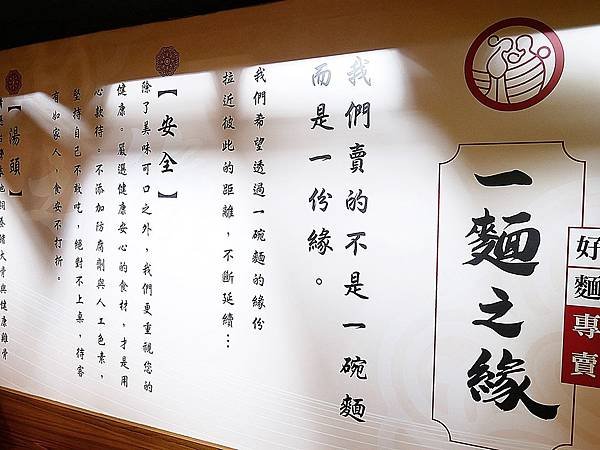 好麵專賣
一麵之緣
我們賣的不是一碗麵
而是一份緣。
我們希望透過一碗麵的緣份
拉近彼此的距離，不斷延續…
【安全】
除了美味可口之外，我們更重視您的
健康。嚴選健康安心的食材，才是用
心款待。不添加防腐劑與人工色素，
堅持自己不敢吃，絕對不上桌，待客
有如家人，食安不打折。
【湯頭】
大骨與健康雞骨